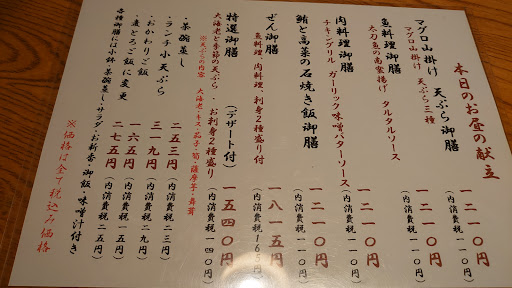 本日のお昼の献立
マグロ山掛け 天ぷら御膳 一二一〇円
マグロ山掛け 天ぷら三種 (内消費税一一〇円)
魚料理御膳 一二一〇円
太刀魚の南蛮揚げ タルタルソース (内消費税一一〇円)
肉料理御膳 一二一〇円
チキングリル ガーリック味噌バターソース (内消費税一一〇円)
鮪と高菜の石焼き飯御膳 一二一〇円
(内消費税一一〇円)
ぜん御膳 一八一五円
魚料理、肉料理、刺身2種盛り (内消費税165円)
特選御膳 (デザート付) 一五四〇円
大海老と季節の天ぷら、お刺身2種盛り (内消費税一四〇円)
※天ぷらの内容 大海老・キス・茄子・筍・薩摩芋・舞茸
・茶碗蒸し 二五三円 (内消費税二三円)
・ランチ小天ぷら 三一九円 (内消費税二九円)
・おかわりご飯 一六五円 (内消費税一五円)
・麦とろご飯に変更 二七五円 (内消費税二五円)
各種御膳には小鉢・茶碗蒸し・サラダ・お新香・御飯・味噌汁付き
※価格は全て税込み価格